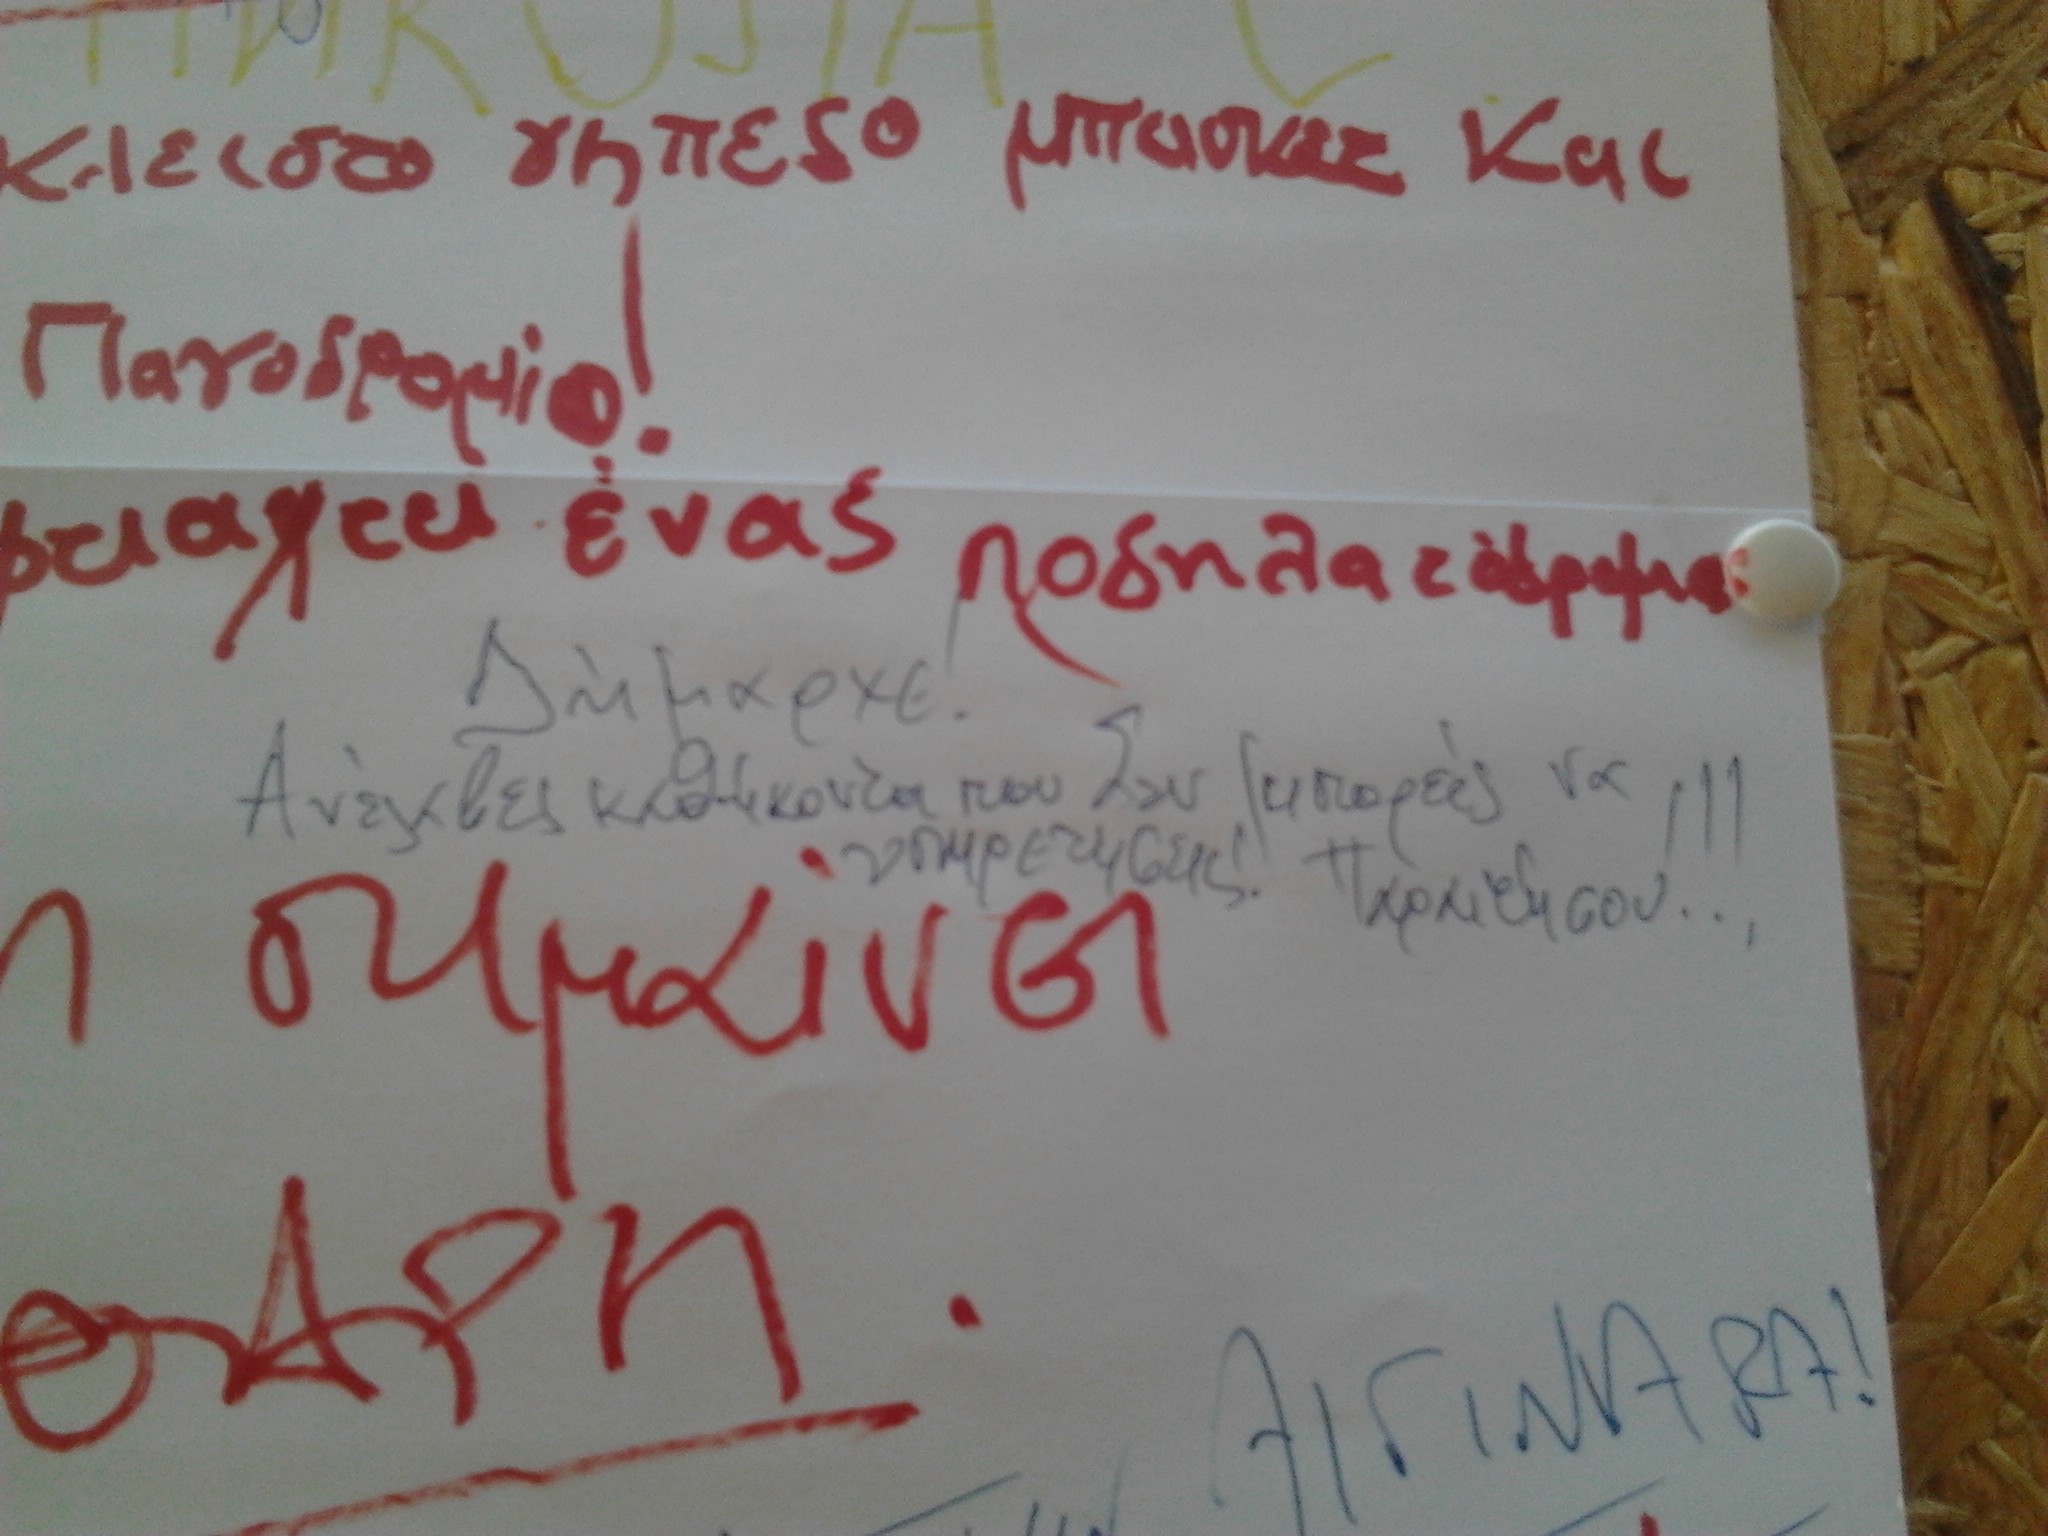 κλειστο γηπεδο μπασκετ και
Παγοδρομίο!
φτιαχτεί ένας ποδηλατόδρομο
Δήμαρχε!
Ανέλαβες καθήκοντα που δεν μπορείς να
υπηρετήσεις! Παραιτήσου...!!!
η σημαίνει
ΑΙΓΙΝΑ ΒΑ!